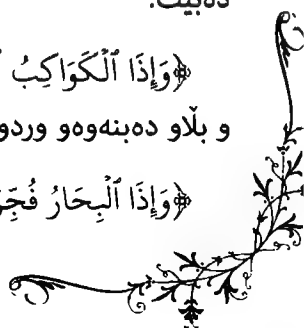 دەبێت.
﴿وَإِذَا ٱلْكَوَاكِبُ
و بڵاو دەبنەوەو وردو
﴿وَإِذَا ٱلْبِحَارُ